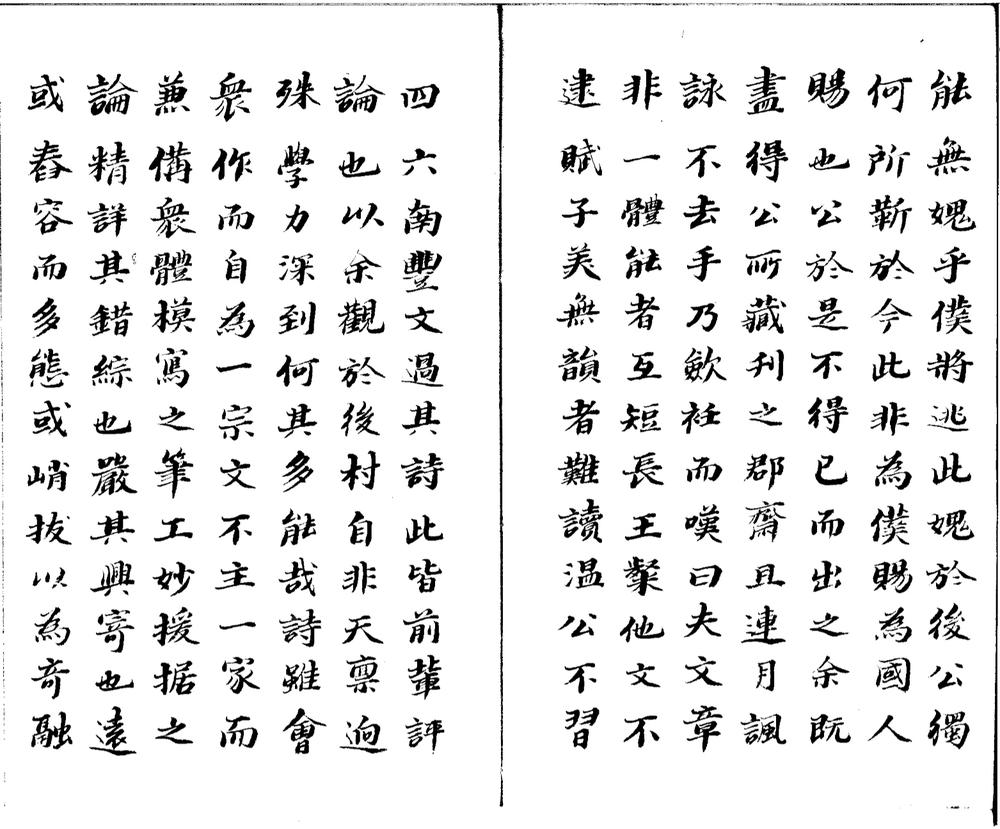 能無媿乎僕將逃此媿於後公獨
何所蘄於今此非為僕賜為國人
賜也公於是不得已而出之余既
盡得公所藏刋之郡齋且連月諷
詠不去手乃歛衽而嘆曰夫文章
非一體能者互短長王粲他文不
逮賦子美無韻者難讀温公不習
四六南豐文過其詩此皆前輩評
論也以余觀於後村自非天禀逈
殊學力深到何其多能哉詩雖會
衆作而自為一宗文不主一家而
兼備衆體模寫之筆工妙援据之
論精詳其錯綜也嚴其興寄也遠
或舂容而多態或峭拔以為奇融